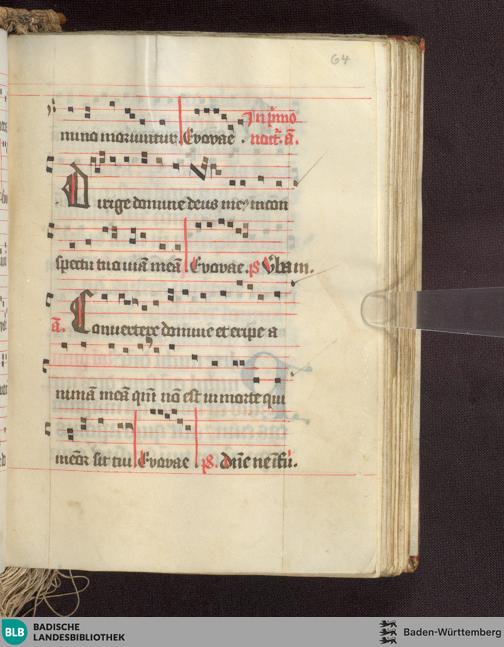 64
mino moriuntur. Evovae. In primo
noct. a.
Dirige domine deus meus in con
spectu tuo viam meam Evovae. ps Verba m.
a. Convertere domine et eripe a
nimam meam qm non est in morte qui
memor sit tui Evovae ps. Dne ne in fu.
BLB BADISCHE
LANDESBIBLIOTHEK
Baden-Württemberg